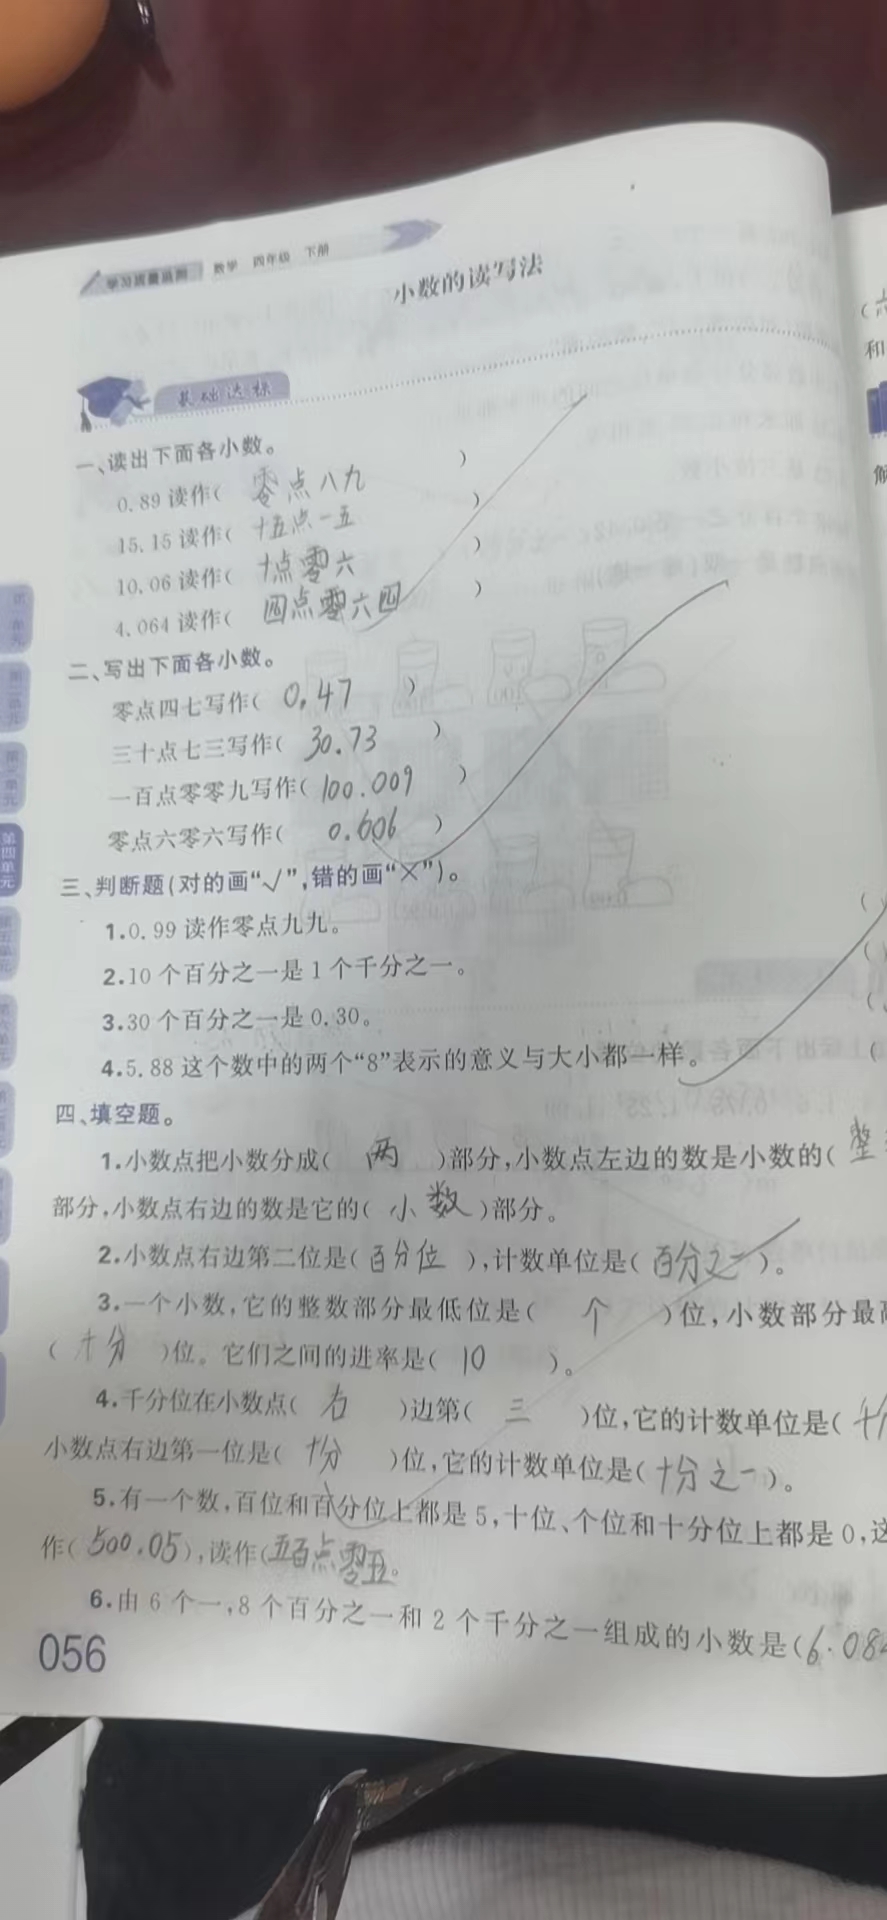 学习质量监测 数学 四年级 下册
小数的读写法
基础达标
一、读出下面各小数。
0.89读作( 零点八九 )
15.15读作( 十五点一五 )
10.06读作( 十点零六 )
4.064读作( 四点零六四 )
二、写出下面各小数。
零点四七写作( 0.47 )
三十点七三写作( 30.73 )
一百点零零九写作( 100.009 )
零点六零六写作( 0.606 )
三、判断题(对的画“√”,错的画“×”)。
1.0.99读作零点九九。
2.10个百分之一是1个千分之一。
3.30个百分之一是0.30。
4.5.88这个数中的两个“8”表示的意义与大小都一样。
四、填空题。
1.小数点把小数分成( 两 )部分,小数点左边的数是小数的( 整
部分,小数点右边的数是它的( 小数 )部分。
2.小数点右边第二位是( 百分位 ),计数单位是( 百分之一 )。
3.一个小数,它的整数部分最低位是( 个 )位,小数部分最高
( 十分 )位。它们之间的进率是( 10 )。
4.千分位在小数点( 右 )边第( 三 )位,它的计数单位是( 千
小数点右边第一位是( 十分 )位,它的计数单位是( 十分之一 )。
5.有一个数,百位和百分位上都是5,十位、个位和十分位上都是0,这
作( 500.05 ),读作( 五百点零五 )。
6.由6个一,8个百分之一和2个千分之一组成的小数是( 6.08
056
第一单元
第二单元
第三单元
第四单元
第五单元
第六单元
和
解